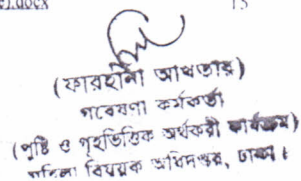 ).docx
(ফারহানা আখতার)
গবেষণা কর্মকর্তা
(পুষ্টি ও গৃহভিত্তিক অর্থকরী কার্যক্রম)
মহিলা বিষয়ক অধিদপ্তর, ঢাকা।